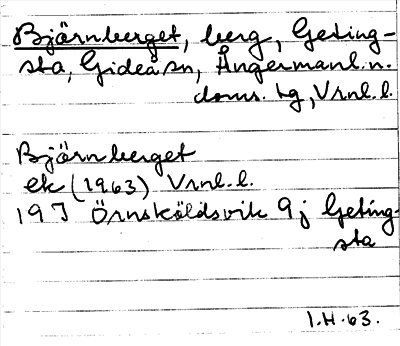 Björnberget, berg, Geting-
sta, Gideå sn, Ångermanl. n.
doms. tg, Vrnl. l.
Björnberget
ek (1963) Vrnl. l.
19J Örnsköldsvik 9j Geting-
sta
I.H.63.